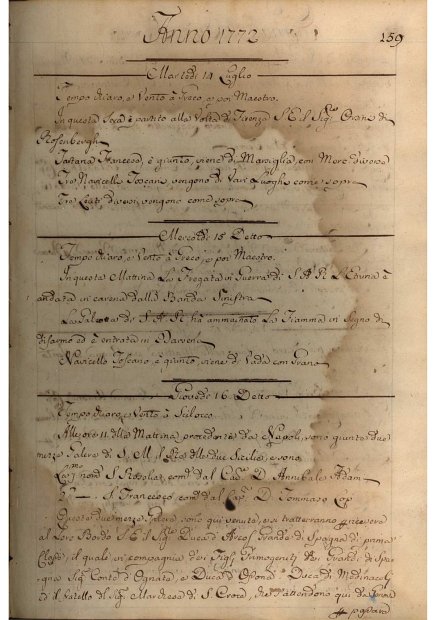 Anno 1772
159
Martedi 14 Luglio
Tempo chiaro, e Vento à Greco, e poi Maestro.
In questa Sera è partito alla Volta di Firenze S. E. il Sigr. Orsini di
Rosenbergh
Tartana Francese, è giunto, viene di Marsiglia, con Merce diverse
Tre Navicelli Toscani vengono di Vari Luoghi come sopra
Tre diversi vengono come sopra
Mercoledi 15 Detto
Tempo chiaro, e Vento à Greco, e poi Maestro.
In questa Mattina La Fregata di Guerra di S. A. R. L'Etruria è
andata in carena dalla Banda Sinistra
La di S. A. R. ha ammainato La Fiamma in Segno di
disarmo ed è entrata in Darsena
Navicello Toscano è giunto, viene di Vada con Grano
Giovedi 16 Detto
Tempo chiaro, e Vento à Scilocco
All'ore 11 della Mattina procedente da Napoli, sono giunte due
mezze Galere di S. M. il Re delle due Sicilie, e sono
La pma nomta S. comta dal Cav. D. Annibale
2da — S. Francesco, comta dal Cav. D. Tommaso
Queste due mezze Galere sono qui venute, e si tratteranno ricevere
al Loro Bordo S. E. il Sigr. Duca di Arcos Grande di Spagna di prima
Classe, il quale in compagnia dei Figli Primogeniti dei Grandi di Spa-
gna Sigr. Conte d'Ognate, e Duca d' Duca di Medinaceli
ed il Fratello del Sigr. Marchese di S. Croce, attendono qui da